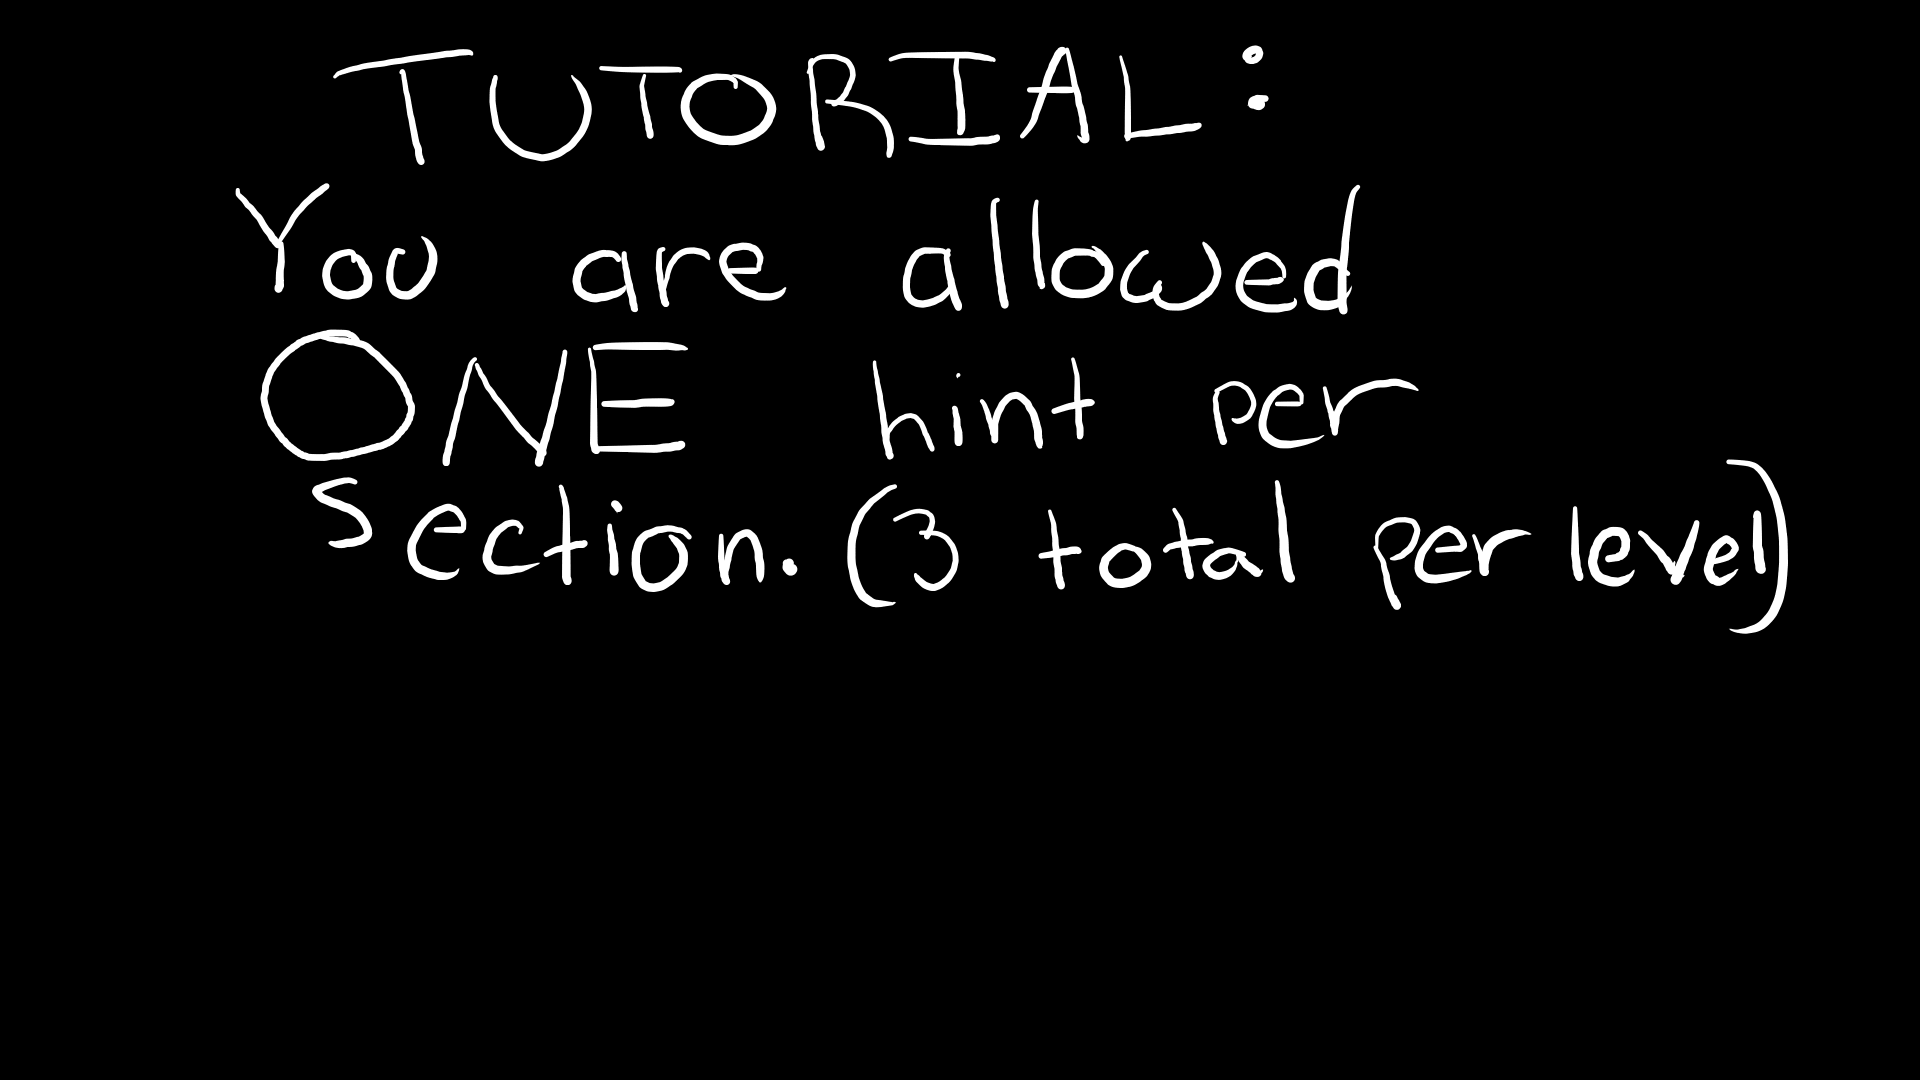 TUTORIAL:
You are allowed
ONE hint per
section. (3 total per level)